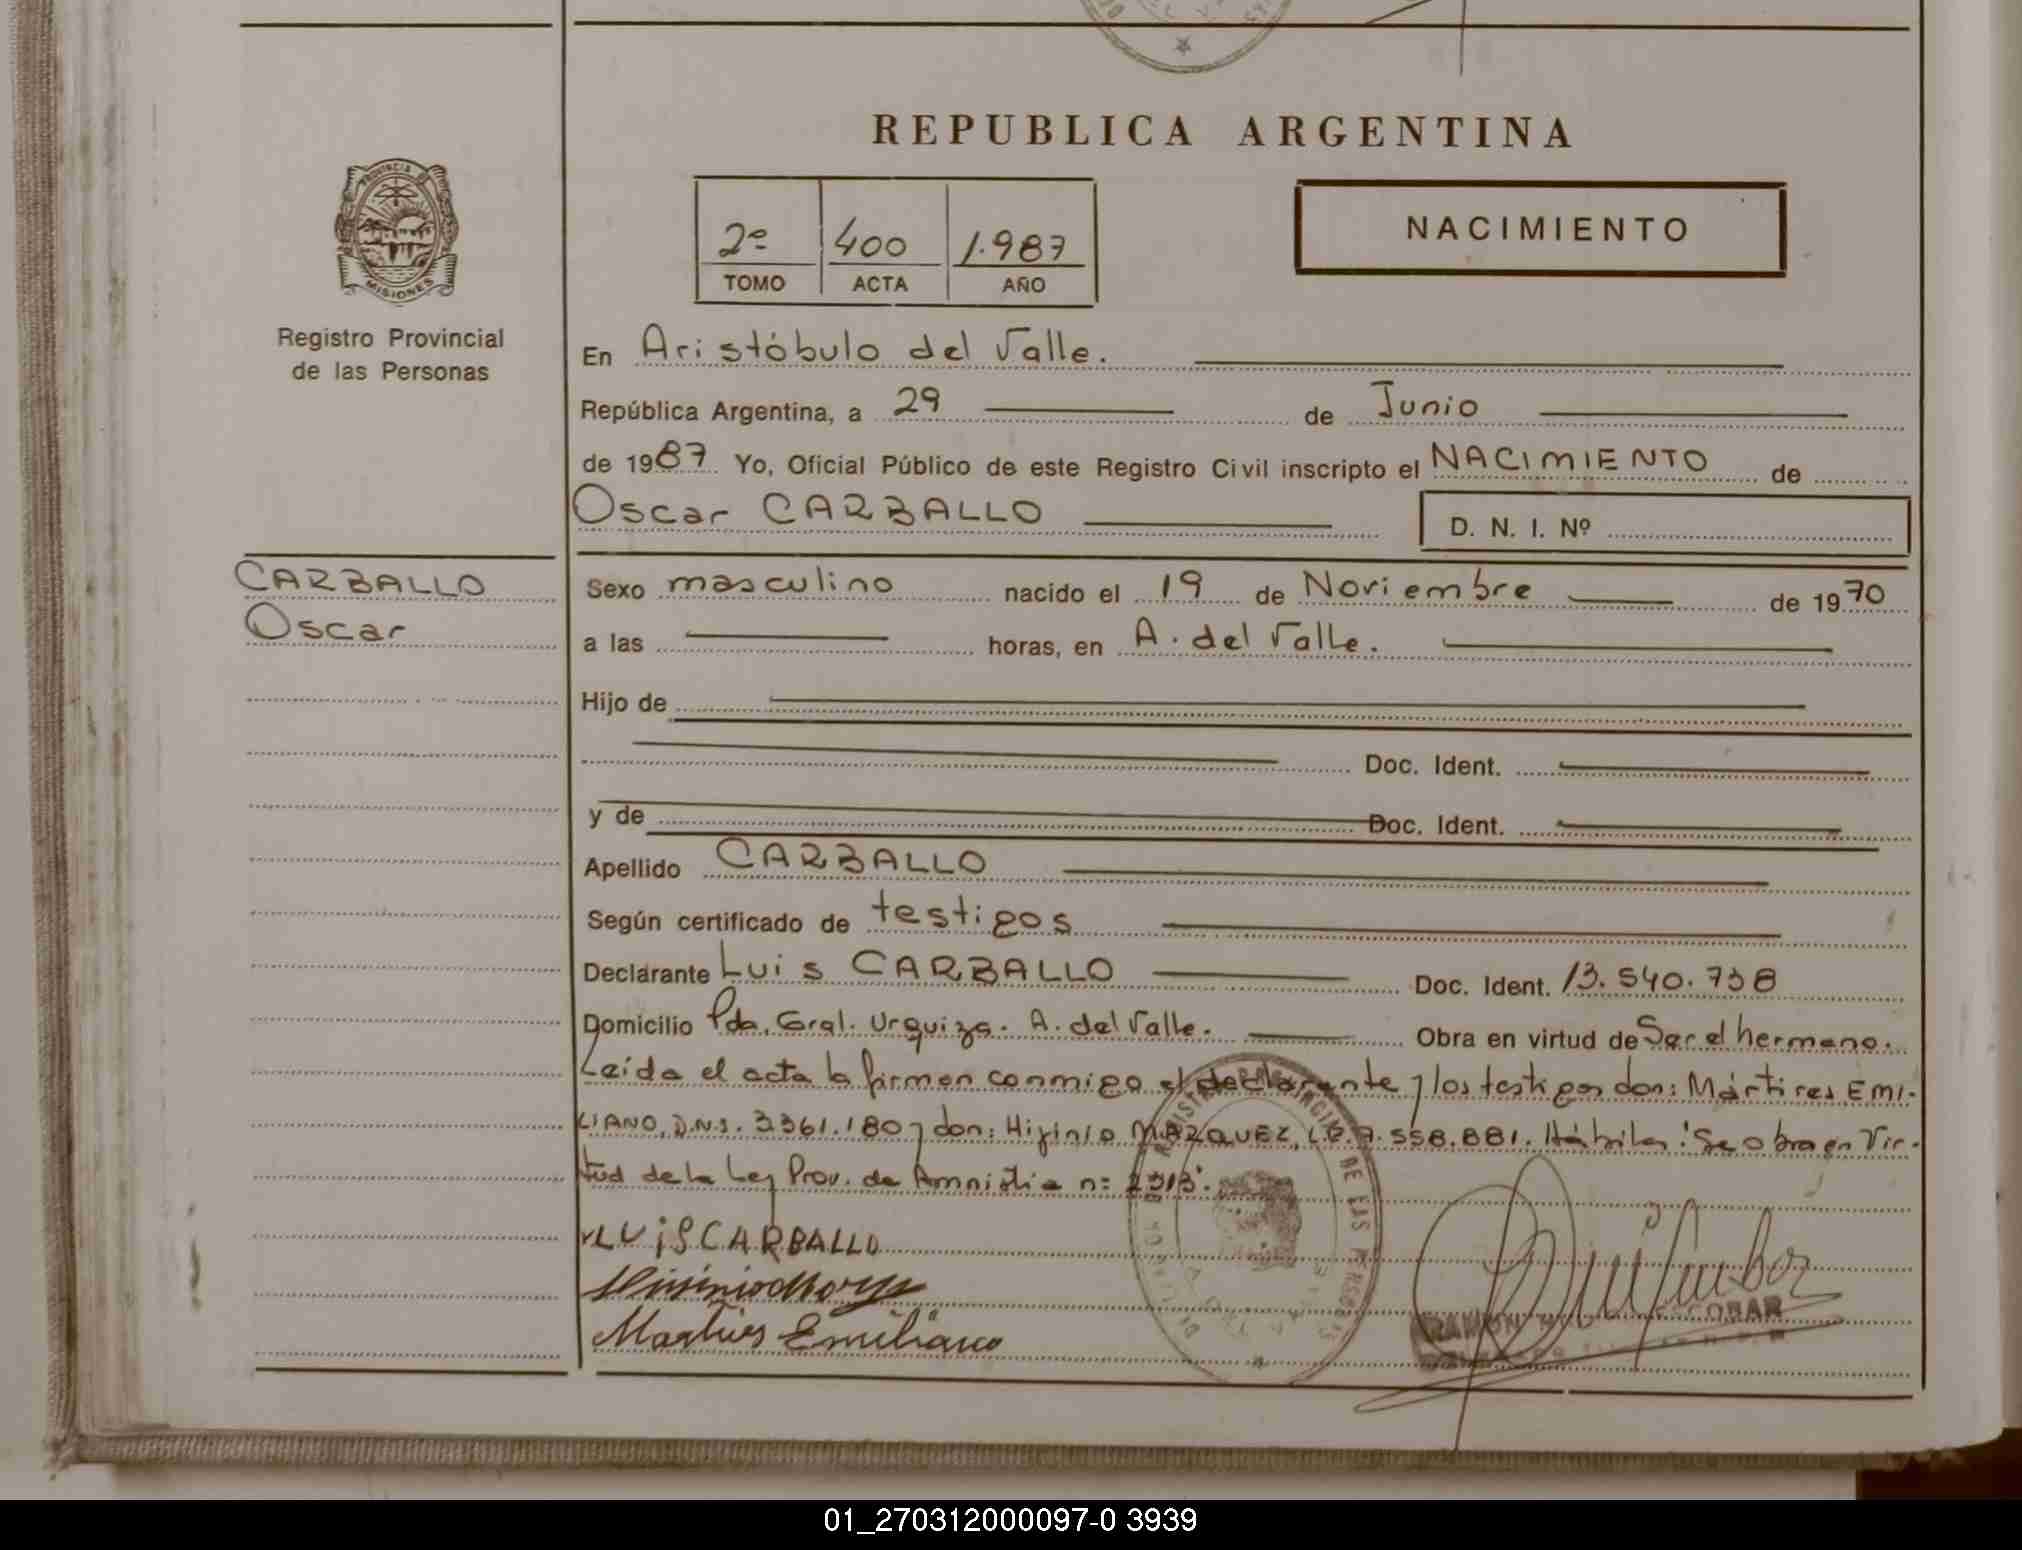 REPUBLICA ARGENTINA
PROVINCIA DE
MISIONES
Registro Provincial
de las Personas
2º 400 1.987
TOMO ACTA AÑO
NACIMIENTO
En Aristóbulo del Valle.
República Argentina, a 29 de Junio
de 1987 Yo, Oficial Público de este Registro Civil inscripto el NACIMIENTO de
Oscar CARBALLO
D. N. I. Nº
CARBALLO
Oscar
Sexo masculino nacido el 19 de Noviembre de 1970
a las horas, en A. del Valle.
Hijo de
Doc. Ident.
y de Doc. Ident.
Apellido CARBALLO
Según certificado de testigos
Declarante Luis CARBALLO Doc. Ident. 13.540.738
Domicilio Pda. Gral. Urquiza. A. del Valle. Obra en virtud de Ser el hermano.
Leída el acta la firman conmigo el declarante y los testigos don: Mártires EMI-
LIANO, D.N.I. 3.361.180 y don: Higinio MARQUEZ, L.E. 7.558.881. Hábiles: Se obra en Vir-
tud de la Ley Prov. de Amnistia nº 2313.
LUiS CARBALLO
Martires Emiliano
ESCOBAR
01_270312000097-0 3939